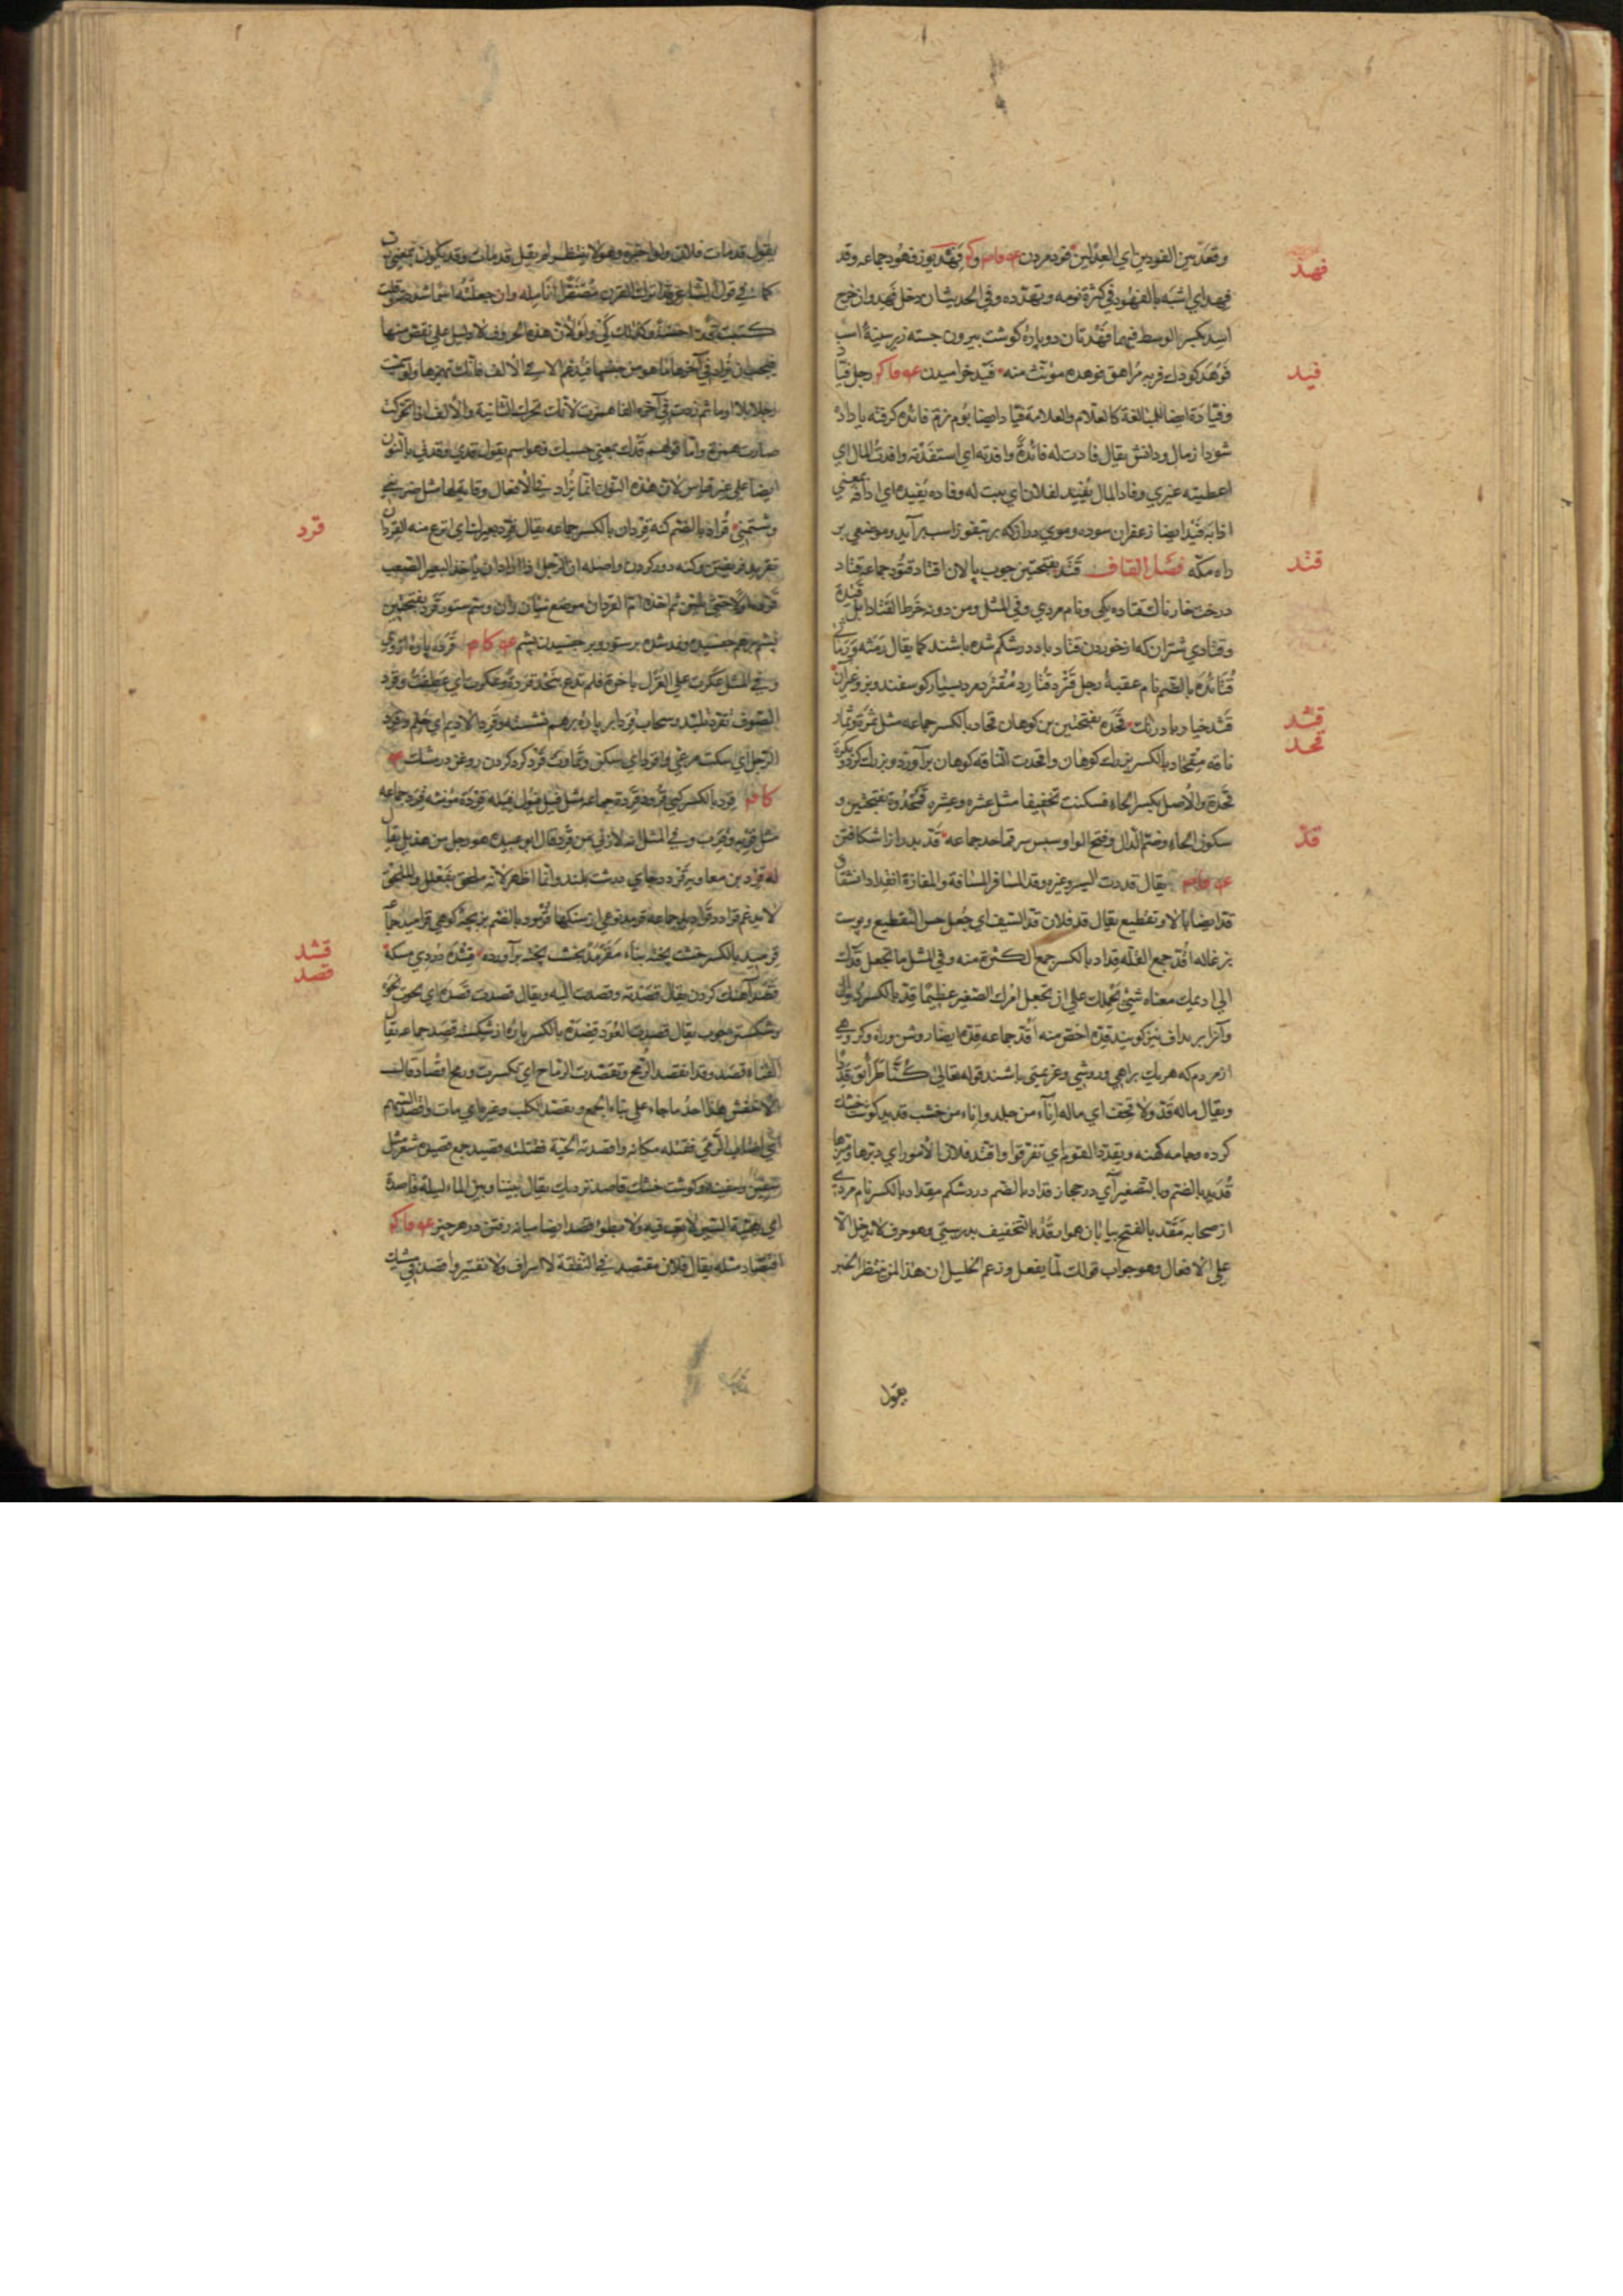 فهد
وقعد بين الفودين اي العدلين فود مردن ع ف ام و ك فهد يوز فهود جماعه وقد
فهد اي اشبه بالفهود في كثرة نومه وتمدده وفي الحديث ان دخل فهد وان خرج
اسد بكسر الوسط فيهما فهدتان دو پاره كوشت بيرون جسته زير سينۀ اسب
فيد
فوهد كودك فربه مراهق فوهده مونث منه فيد خراميدن ع ف ا ك رجل فياد
وفيادة ايضا للمبالغة كالعلام والعلامة فياد ايضا بوم نر فائده كرفته يا داده
شود از مال ودانش يقال فادت له فائدة وافدته اي استفدته وافدت المال اي
اعطيته غيري وفاد المال يفيد لفلان اي يبت له وفاده يفيده اي دافه بمعني
اذابه فيد ايضا زعفران سوده وموي دراز كه بر تفوز اسب برآيد وموضعي بر
قتد
راه مكه فصل القاف قتد بفتحتين چوب پالان اقتاد قتود جماعه قتاد
درخت خارناك قتاده يكي ونام مردي وفي المثل ومن دونه خرط القتاد ابل قتدة
وقتادي شتران كه از خوردن قتاد با درد شكم شده باشند كما يقال رمثه ورماثي
قتائده بالضم نام عقبه رجل قثرد قثارد مقثرد مرد بسيار كوسفند وبز وغيرآن
قثد
قحد
قثد خيار بادرنك قحده بفتحتين بن كوهان قحاد بالكسر جماعه مثل ثمرة وثمار
ناقه مقحاد بالكسر بزرك كوهان واقحدت الناقه كوهان برآورد وبزرك كرد وبكرة
قحدة والاصل بكسر الحاء فسكنت تخفيفا مثل عشره وعشره قمحدوة بفتحتين و
قد
سكون الحاء وضم الدال وفتح الواو سپس سر قماحد جماعه قد بدرازا شكافتن
يقال قددت السير وغيره وقد المسافر المسافة والمفازة انقداد انشقاق
قد ايضا بالا وتقطيع يقال قد فلان قد السيف اي جعل حسن التقطيع وپوست
بزغاله اقد جمع القله قداد بالكسر جمع الكثرة منه وفي المثل ما تجعل قدك
الي اديمك معناه شئ يحملك علي ان تجعل امرك الصغير عظيما قد بالكسر دوال
وآنرا بر بداف نيز كويند قده اخص منه اقد جماعه قده ايضا روش وراه وكروهي
از مردم كه هر يك براهي وروشي وعزيمتي باشند قوله تعالي كنا طرائق قددا
ويقال ماله قد ولا قحف اي ماله اناء من جلد واناء من خشب قديد كوشت خشك
كرده وجامه كهنه ويقدد القوم اي تفرقوا واقتد فلان الامور اي دبرها وميزها
قديد بالضم والتصغير آبي در حجاز قداد بالضم درد شكم مقداد بالكسر نام مردي
از صحابه مقد بالفتح بيابان هموار قد بالتخفيف بدرستي وهو حرف لا تدخل الا
علي الافعال وهو جواب قولك لما يفعل وزعم الخليل ان هذا لمن ينتظر الخبر
يقول
يقول قد مات فلان ولو اخبره وهو لا ينتظر لم يقل قد مات وقد يكون بمعني
كما في قول الشاعر قد اترك القرن مصفرا انامله وان جعلته اسما شددته قلت
كتبت قدا حسنة وكذلك كي ولو لان هذه الحروف لا دليل علي نقص منها
فيجب ان يزاد في آخرها ما هو من جنسها فيدغم الا في الالف فانك تهمزها ولو سميت
رجلا بلا او ما ثم زدت في آخره الفا همزت لانك تحرك الثانية والالف اذا تحركت
صارت همزة واما قولهم قدك بمعني حسبك فهو اسم يقول قدي وقدني بالنون
ايضا علي غير قياس لان هذه النون انما تزاد في الافعال وقاية لها مثل ضربني
قرد
وشتمني قراد بالضم كنه قردان بالكسر جماعه يقال قرد بعيرك اي انزع منه القردان
تقريد فريفتن وكنه دور كردن واصله ان الرجل اذا اراد ان ياخذ البعير الصعب
بشم برهم چفسيده ونمد شده بر ستور وبر چفسيدن پشم
وفي المثل عكرت علي الغزل باخرة فلم تدع بنجد قردة وعكرت اي عطفت وقرد
الرجل اي سكت من عي واقرد اي سكن وتماوت قرد كرد كردن روغن در مشك
قرد بالكسر كپي قرود قردة جماعه مثل فيل فيول فيله قردة مونثه قرد جماعه
مثل قربه وقرب وفي المثل انه لازني من قرد قال ابو عبيده هو رجل من هذيل يقال
له قرد بن معاويه قردد جاي درشت بلند وانما اظهر لانه ملحق بفعلل والملحق
قشد
قصد
قرميد بالكسر خشت پخته بناء مقرمد بخشت پخته برآورده قشده دردي مسكه
قصد آهنك كردن يقال قصدته وقصدت اليه ويقال قصدت قصده اي نحوت نحوه
وشكستن چوب يقال قصدت العود قصده بالكسر پاره از شكسته قصد جماعه يقال
القناة قصد وقد انقصد الرمح وتقصدت الرماح اي تكسرت ورمح اقصاد قال
الاخفش هذا احد ما جاء علي بناء الجمع وتقصد الكلب وغيره اي مات واقصد السهم
اي اصاب الرمي فقتله مكانه واقصدته الحية فقتلته قصيد جمع قصيدة شعر مثل
سفين وسفينه وكوشت خشك قاصد نزديك يقال بيننا وبين الماء ليلة قاصدة
اي هينة السير لا تعب فيه ولا مبطوء قصد ايضا ميانه رفتن در هر چيز ع ف ا ك
اقتصاد مثله يقال فلان مقتصد في النفقة لا اسراف ولا تقتير واقصد في مشيك